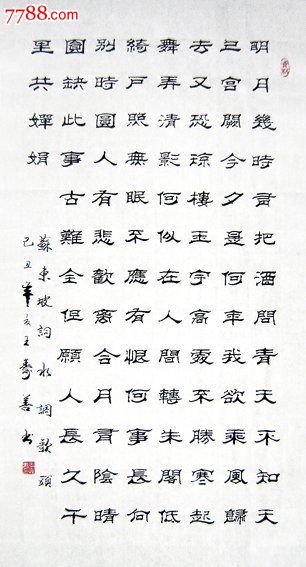 7788.com
明月幾時有把酒問青天不知天
上宮闕今夕是何年我欲乘風歸
去又恐瓊樓玉宇高處不勝寒起
舞弄清影何似在人間轉朱閣低
綺戶照無眠不應有恨何事長向
別時圓人有悲歡離合月有陰晴
圓缺此事古難全但願人長久千
里共嬋娟
蘇東坡詞水調歌頭
己丑 王壽善书